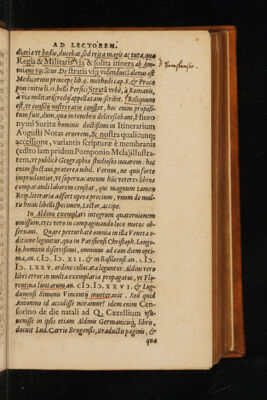 AD LECTOREM.
diaria et hodie, ducebat, sed trita magis ac tuta, qua
Regia & Militaris via & solita itinera ab Am-
miano vocatur. De stratis vijs videndus Galenus est
Medicorum princeps lib. 9. methodi cap. 8. & Proco
pius initio li. 2. belli Persici Strata verbò, à Romanis,
à via militari & regij appellatam scribit. Reliquum
est, ut consilio nostri ratio constet, hoc enim proposi-
tum fuit, dum, quæ in tenebris delitescebant, Hiero
nymi Suritæ hominis doctissimi in Itinerarium
Augusti Notas eruerem, & nostra qualicunq;
accessione, variantis scripturæ è membranis
(edito iam pridem Pomponio Mela) illustra-
rem, ut publicè Geographiæ studiosis iuuarem: hoc
enim spectaui, præterea nihil. Verum, ne quis fortè
imprudentiæ, ut superuacaneum hûc veteres libros
comparandi laborem censeat, qui magnum tamen
Reip. literariæ adferre opera precium, vnum de mul-
tis huius libelli specimen, Lector, accipe.
In Aldino exemplari integrum quaternionem
omissum, tres vero in compaginando loco motos ob-
seruaui. Quare perturbatè omnia in ista Veneta e-
ditione leguntur, quæ in Parisiensi Christoph. Longo-
lij, hominis disertissimi, omnium ad eam diem opti-
ma, an. cIↄ. Iↄ. XII. & in Basileensi an. cIↄ.
Iↄ. LXXV. ordine collocata leguntur. Aldini vero
libri error in multa exemplaria propagatus, ut Flo-
rentina Iuntarum an. cIↄ. Iↄ. XXVI. & Lug-
dunensi Simonis Vincentij inueterauit. Sed quid
Antonino id accidisse miramur? idem enim Cen-
sorino de die natali ad Q. Cærellium vsu-
uenisse in ipsis etiam Aldinis Germanicisq; libris,
docuit Lud. Carrio Brugensis, traductis paginis, &
quæ